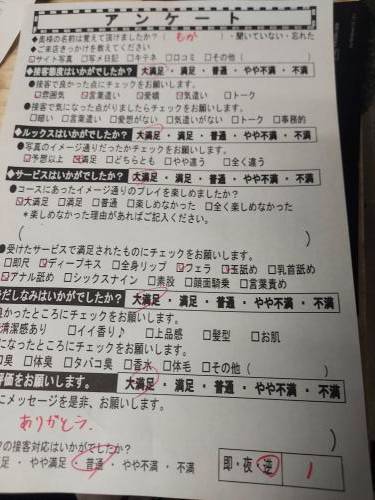 アンケート
◆奥様の名前は覚えて頂けましたか?( もか )・聞いていない・忘れた
◆ご来店きっかけを教えてください
□サイト写真 □写メ日記 □キテネ □口コミ □その他( )
◆接客態度はいかがでしたか? 大満足・満足・普通・やや不満・不満
●接客で良かった点にチェックをお願いします。
☑雰囲気 ☑言葉遣い ☑愛嬌 ☑気遣い □トーク
●接客で気になった点がありましたらチェックをお願いします。
□暗い □言葉遣い □愛想がない □気遣いがない □トーク □事務的
◆ルックスはいかがでしたか? 大満足・満足・普通・やや不満・不満
●写真のイメージ通りだったかチェックをお願いします。
☑予想以上 ☑満足 □どちらとも □やや違う □全く違う
◆サービスはいかがでしたか? 大満足・満足・普通・やや不満・不満
●コースにあったイメージ通りのプレイを楽しめましたか?
☑大満足 □満足 □普通 □楽しめなかった □全く楽しめなかった
*楽しめなかった理由があればご記入ください。
( )
●受けたサービスで満足されたものにチェックをお願いします。
□即尺 ☑ディープキス □全身リップ ☑フェラ ☑玉舐め □乳首舐め
☑アナル舐め □シックスナイン □素股 □顔面騎乗 □言葉責め
だしなみはいかがでしたか? 大満足・満足・普通・やや不満・不満
良かったところにチェックをお願いします。
清潔感あり □イイ香り♪ □上品感 □髪型 □お肌
になったところにチェックをお願いします。
□臭 □体臭 □タバコ臭 □香水 □体毛 □その他( )
評価をお願いします。 大満足・満足・普通・やや不満・不満
にメッセージを是非、お願いします。
ありがとう.
)
の接客対応はいかがでしたか?
足・やや満足・普通・やや不満・不満
即・夜・逆 1